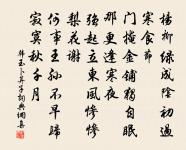 楊柳綠成陰初過
寒食節
門掩金鋪獨自眠
那更逢寒夜
強起立東風慘慘
梨花謝
何事王孫不早歸
寂寞秋千月
韓玉卜算子詞典網